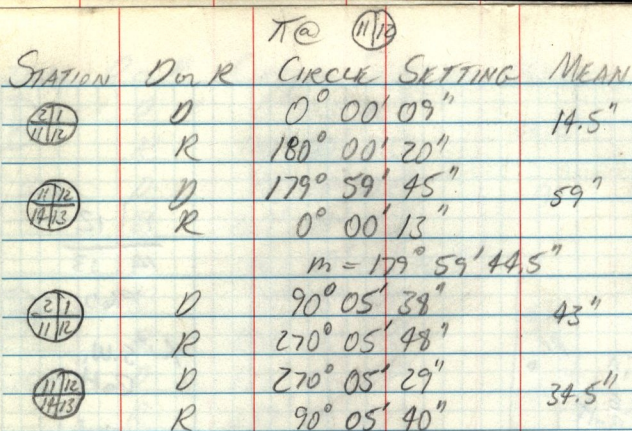 π@ 11|12
STATION D or R CIRCLE SETTING MEAN
2|1 11|12 D 0° 00' 09" 14.5"
R 180° 00' 20"
11|12 14|13 D 179° 59' 45" 59"
R 0° 00' 13"
m = 179° 59' 44.5"
2|1 11|12 D 90° 05' 38" 43"
R 270° 05' 48"
11|12 14|13 D 270° 05' 29" 34.5"
R 90° 05' 40"